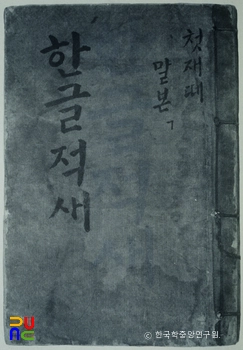 첫재매
말본
한글적새
© 한국학중앙연구원